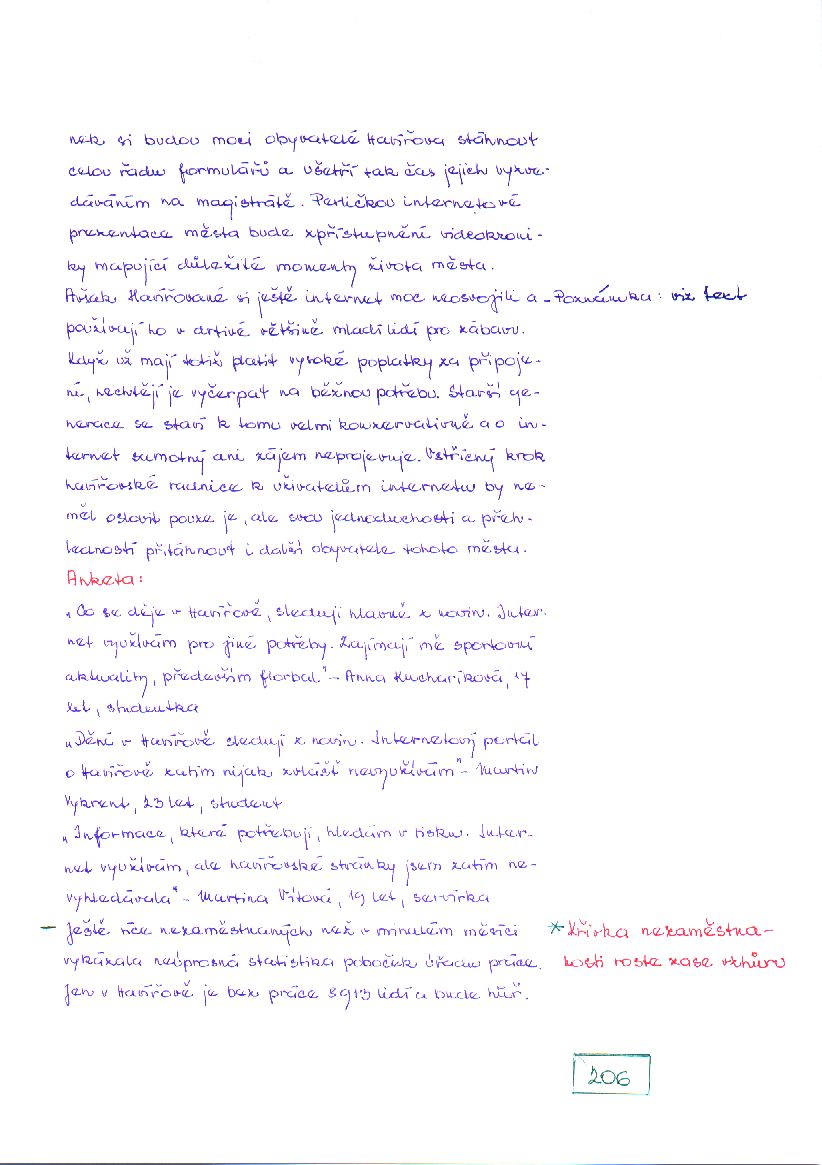 nek si budou moci obyvatelé Havířova stáhnout
celou řadu formulářů a ušetří tak čas jejich vyzve-
dáváním na magistrátě. Perličkou internetové
prezentace města bude zpřístupnění videokroni-
ky mapující důležité momenty života města.
Avšak Havířované si ještě internet moc neosvojili a - Poznámka: viz text
používají ho v drtivé většině mladí lidí pro zábavu.
Když už mají totiž platit vysoké poplatky za připoje-
ní, nechtějí je vyčerpat na běžnou potřebu. Starší ge-
nerace se staví k tomu velmi konzervativně a o in-
ternet samotný ani zájem neprojevuje. Vstřícný krok
havířovské radnice k uživatelům internetu by ne-
měl oslovit pouze je, ale svou jednoduchostí a přeh-
ledností přitáhnout i další obyvatele tohoto města.
Anketa:
„Co se děje v Havířově, sleduji hlavně z novin. Inter-
net využívám pro jiné potřeby. Zajímají mě sportovní
aktuality, především florbal." - Anna Kuchaříková, 17
let, studentka
„Dění v Havířově sleduji z novin. Internetový portál
o Havířově zatím nijak zvlášť nevyužívám" - Martin
Vykrent, 23 let, student
„Informace, které potřebuji, hledám v tisku. Inter-
net využívám, ale havířovské stránky jsem zatím ne-
vyhledávala" - Martina Vítová, 19 let, servírka
- Ještě více nezaměstnaných než v minulém měsíci
vykázala neúprosná statistika poboček úřadu práce.
Jen v Havířově je bez práce 8913 lidí a bude hůř.
* Křivka nezaměstna-
nosti roste zase vzhůru
206